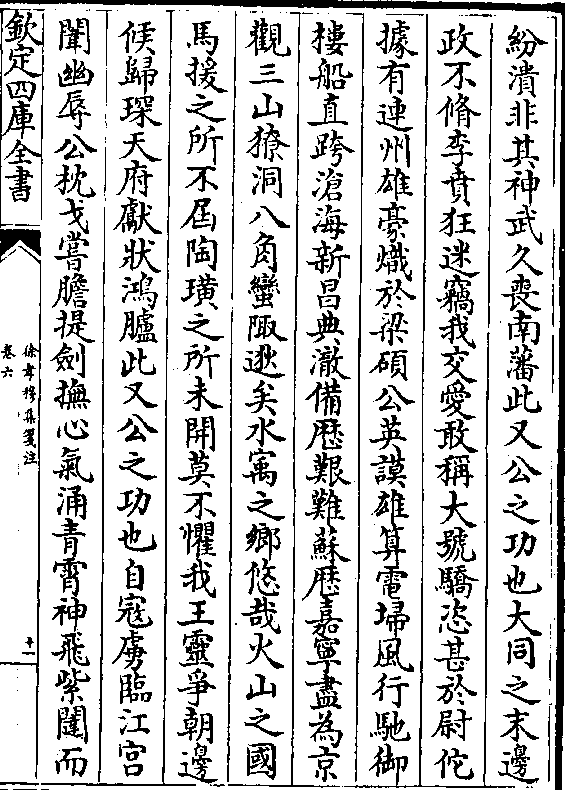 紛潰非其神武久喪南藩此又公之功也大同之末邊
政不脩李賁狂迷竊我交愛敢稱大號驕恣甚於尉佗
據有連州雄豪熾於梁碩公英謨雄算電埽風行馳御
樓船直跨滄海新昌典澈備歴艱難蘇歴嘉寧盡為京
觀三山獠洞八角蠻陬逖矣水寓之鄉悠哉火山之國
馬援之所不屆陶璜之所未開莫不懼我王靈爭朝邊
候歸琛天府獻狀鴻臚此又公之功也自寇虜臨江宫
闈幽辱公枕戈嘗膽提劍撫心氣涌青霄神飛紫闥而
欽定四庫全書
徐孝穆集箋注
卷六
十一